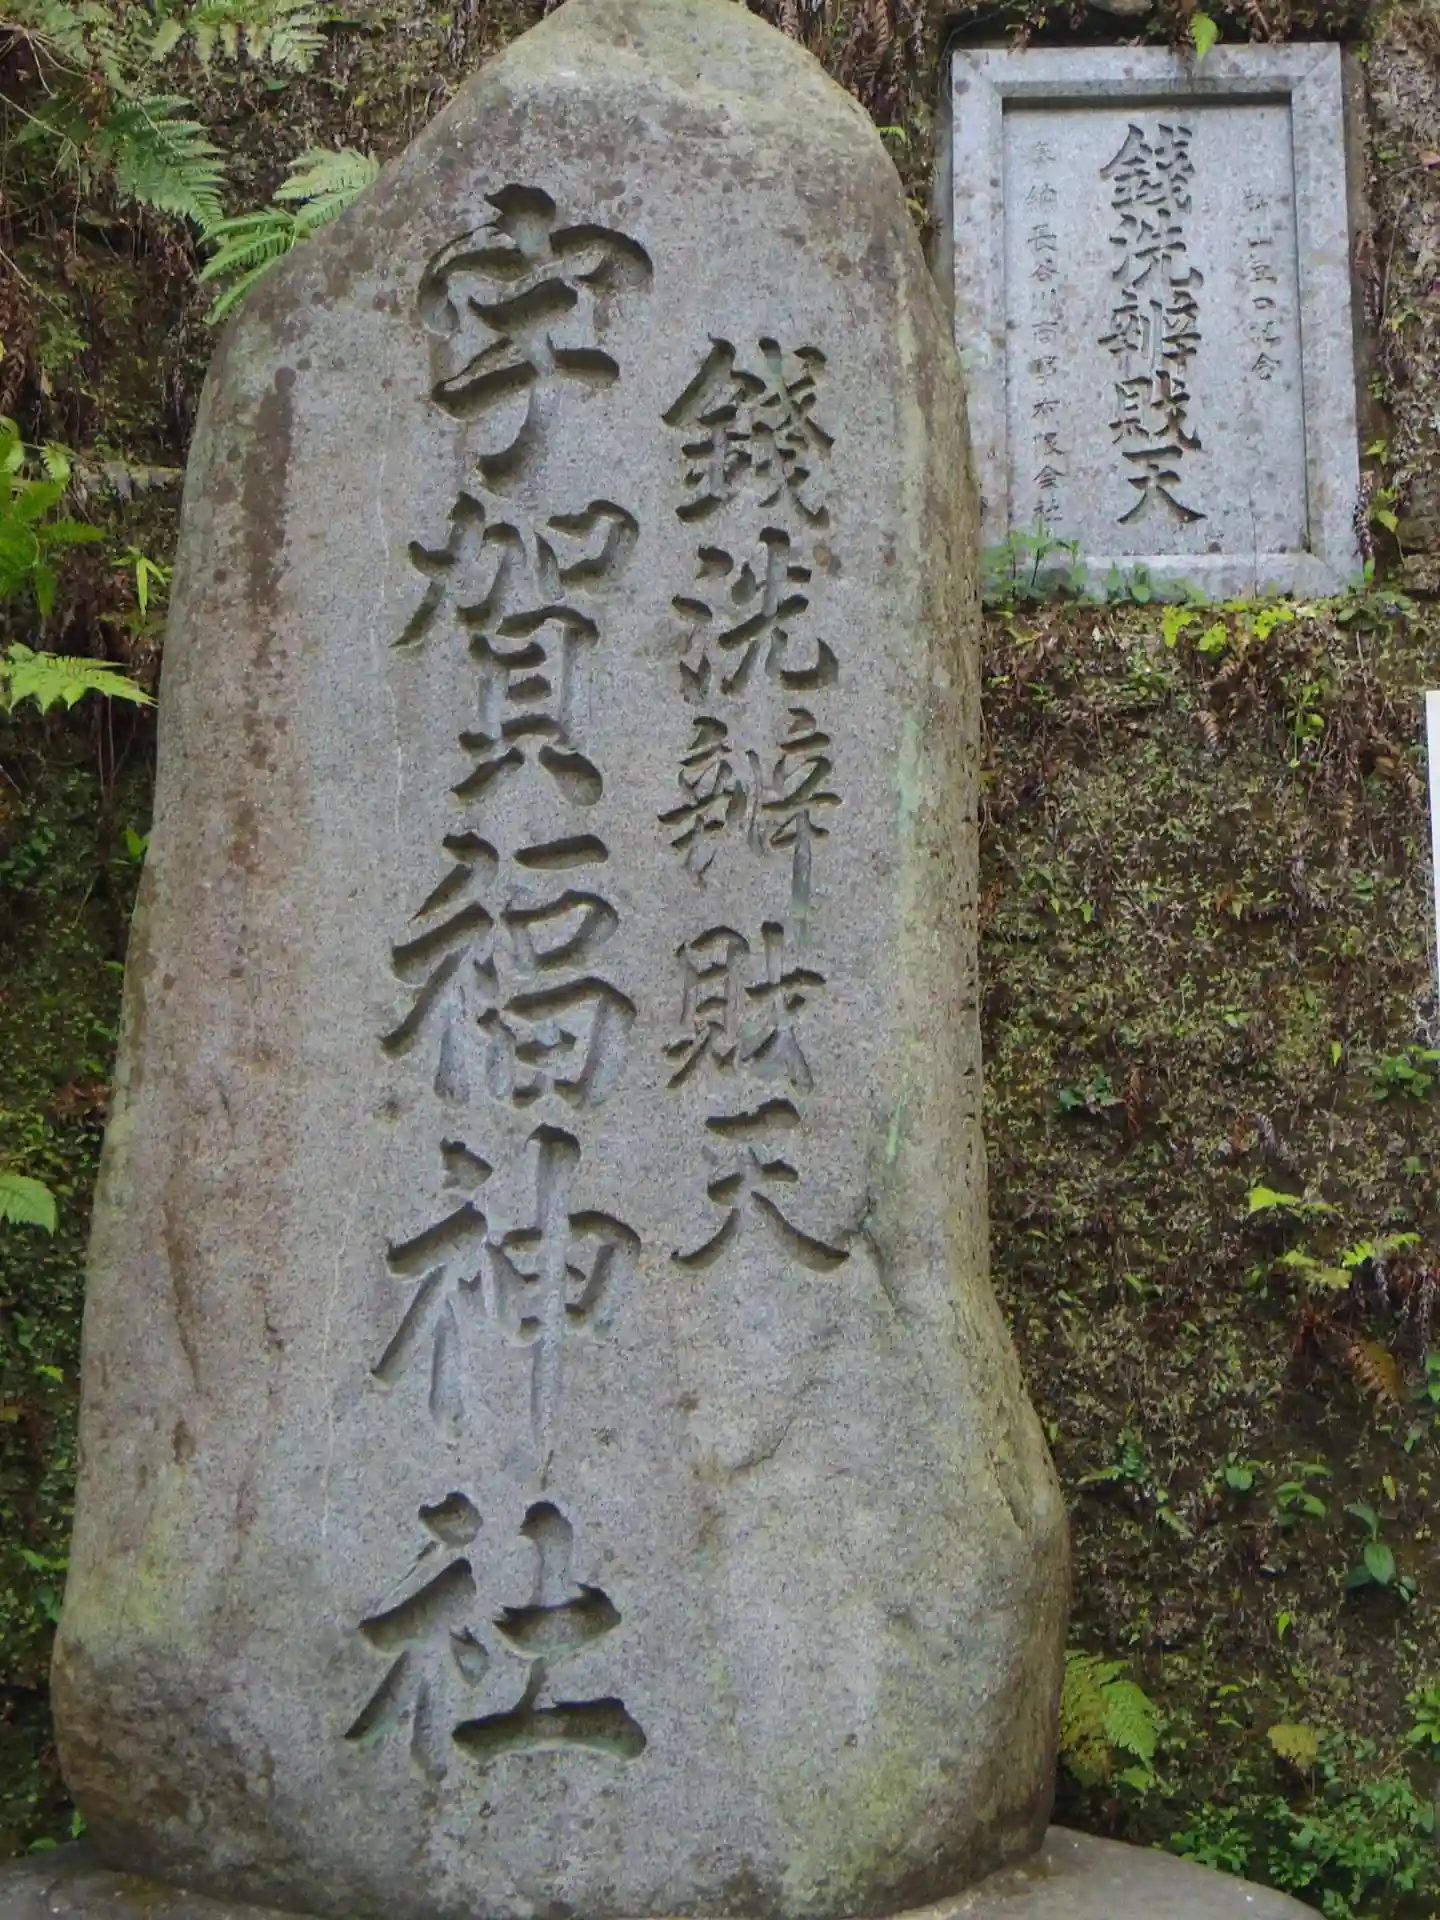 銭洗辨財天
宇賀福神社
銭洗辨財天
奉納長谷川商事有限会社